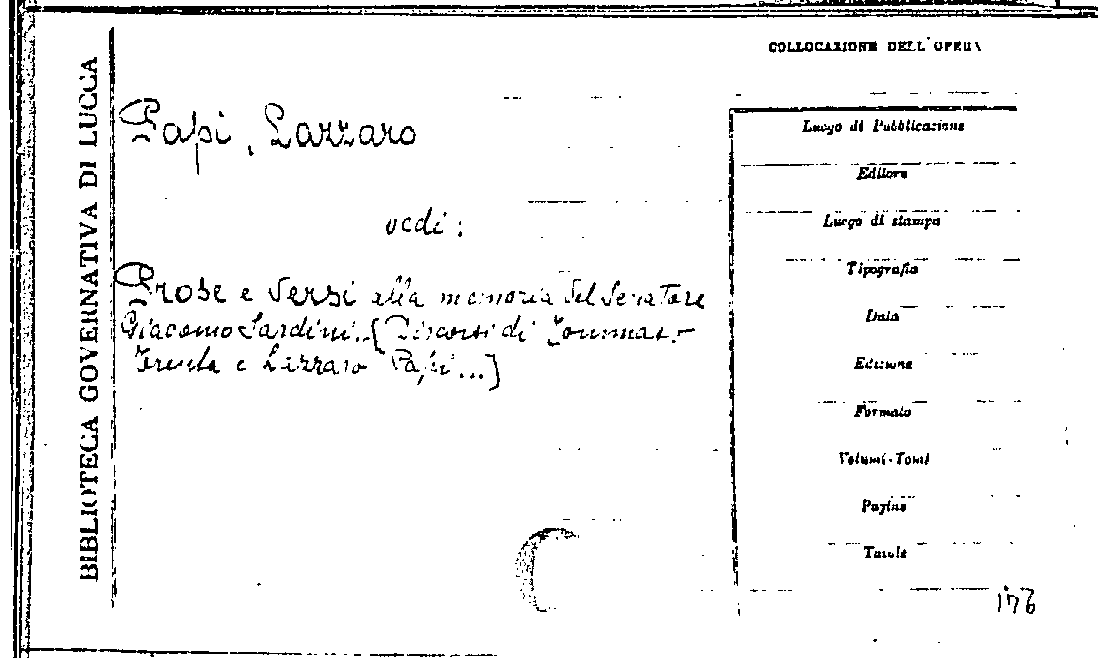 BIBLIOTECA GOVERNATIVA DI LUCCA
COLLOCAZIONE DELL'OPERA
Papi, Lazzaro
vedi:
Prose e versi alla memoria del Senatore
Giacomo Sardini. [Discorsi di Tommas.
Trenta e Lazzaro Papi...]
Luogo di Pubblicazione
Editore
Luogo di stampa
Tipografia
Data
Edizione
Formato
Volumi-Tomi
Pagine
Tavole
176